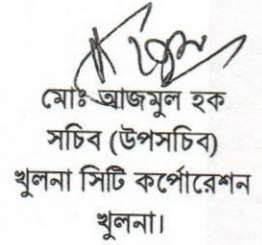 মোঃ আজমুল হক
সচিব (উপসচিব)
খুলনা সিটি কর্পোরেশন
খুলনা।